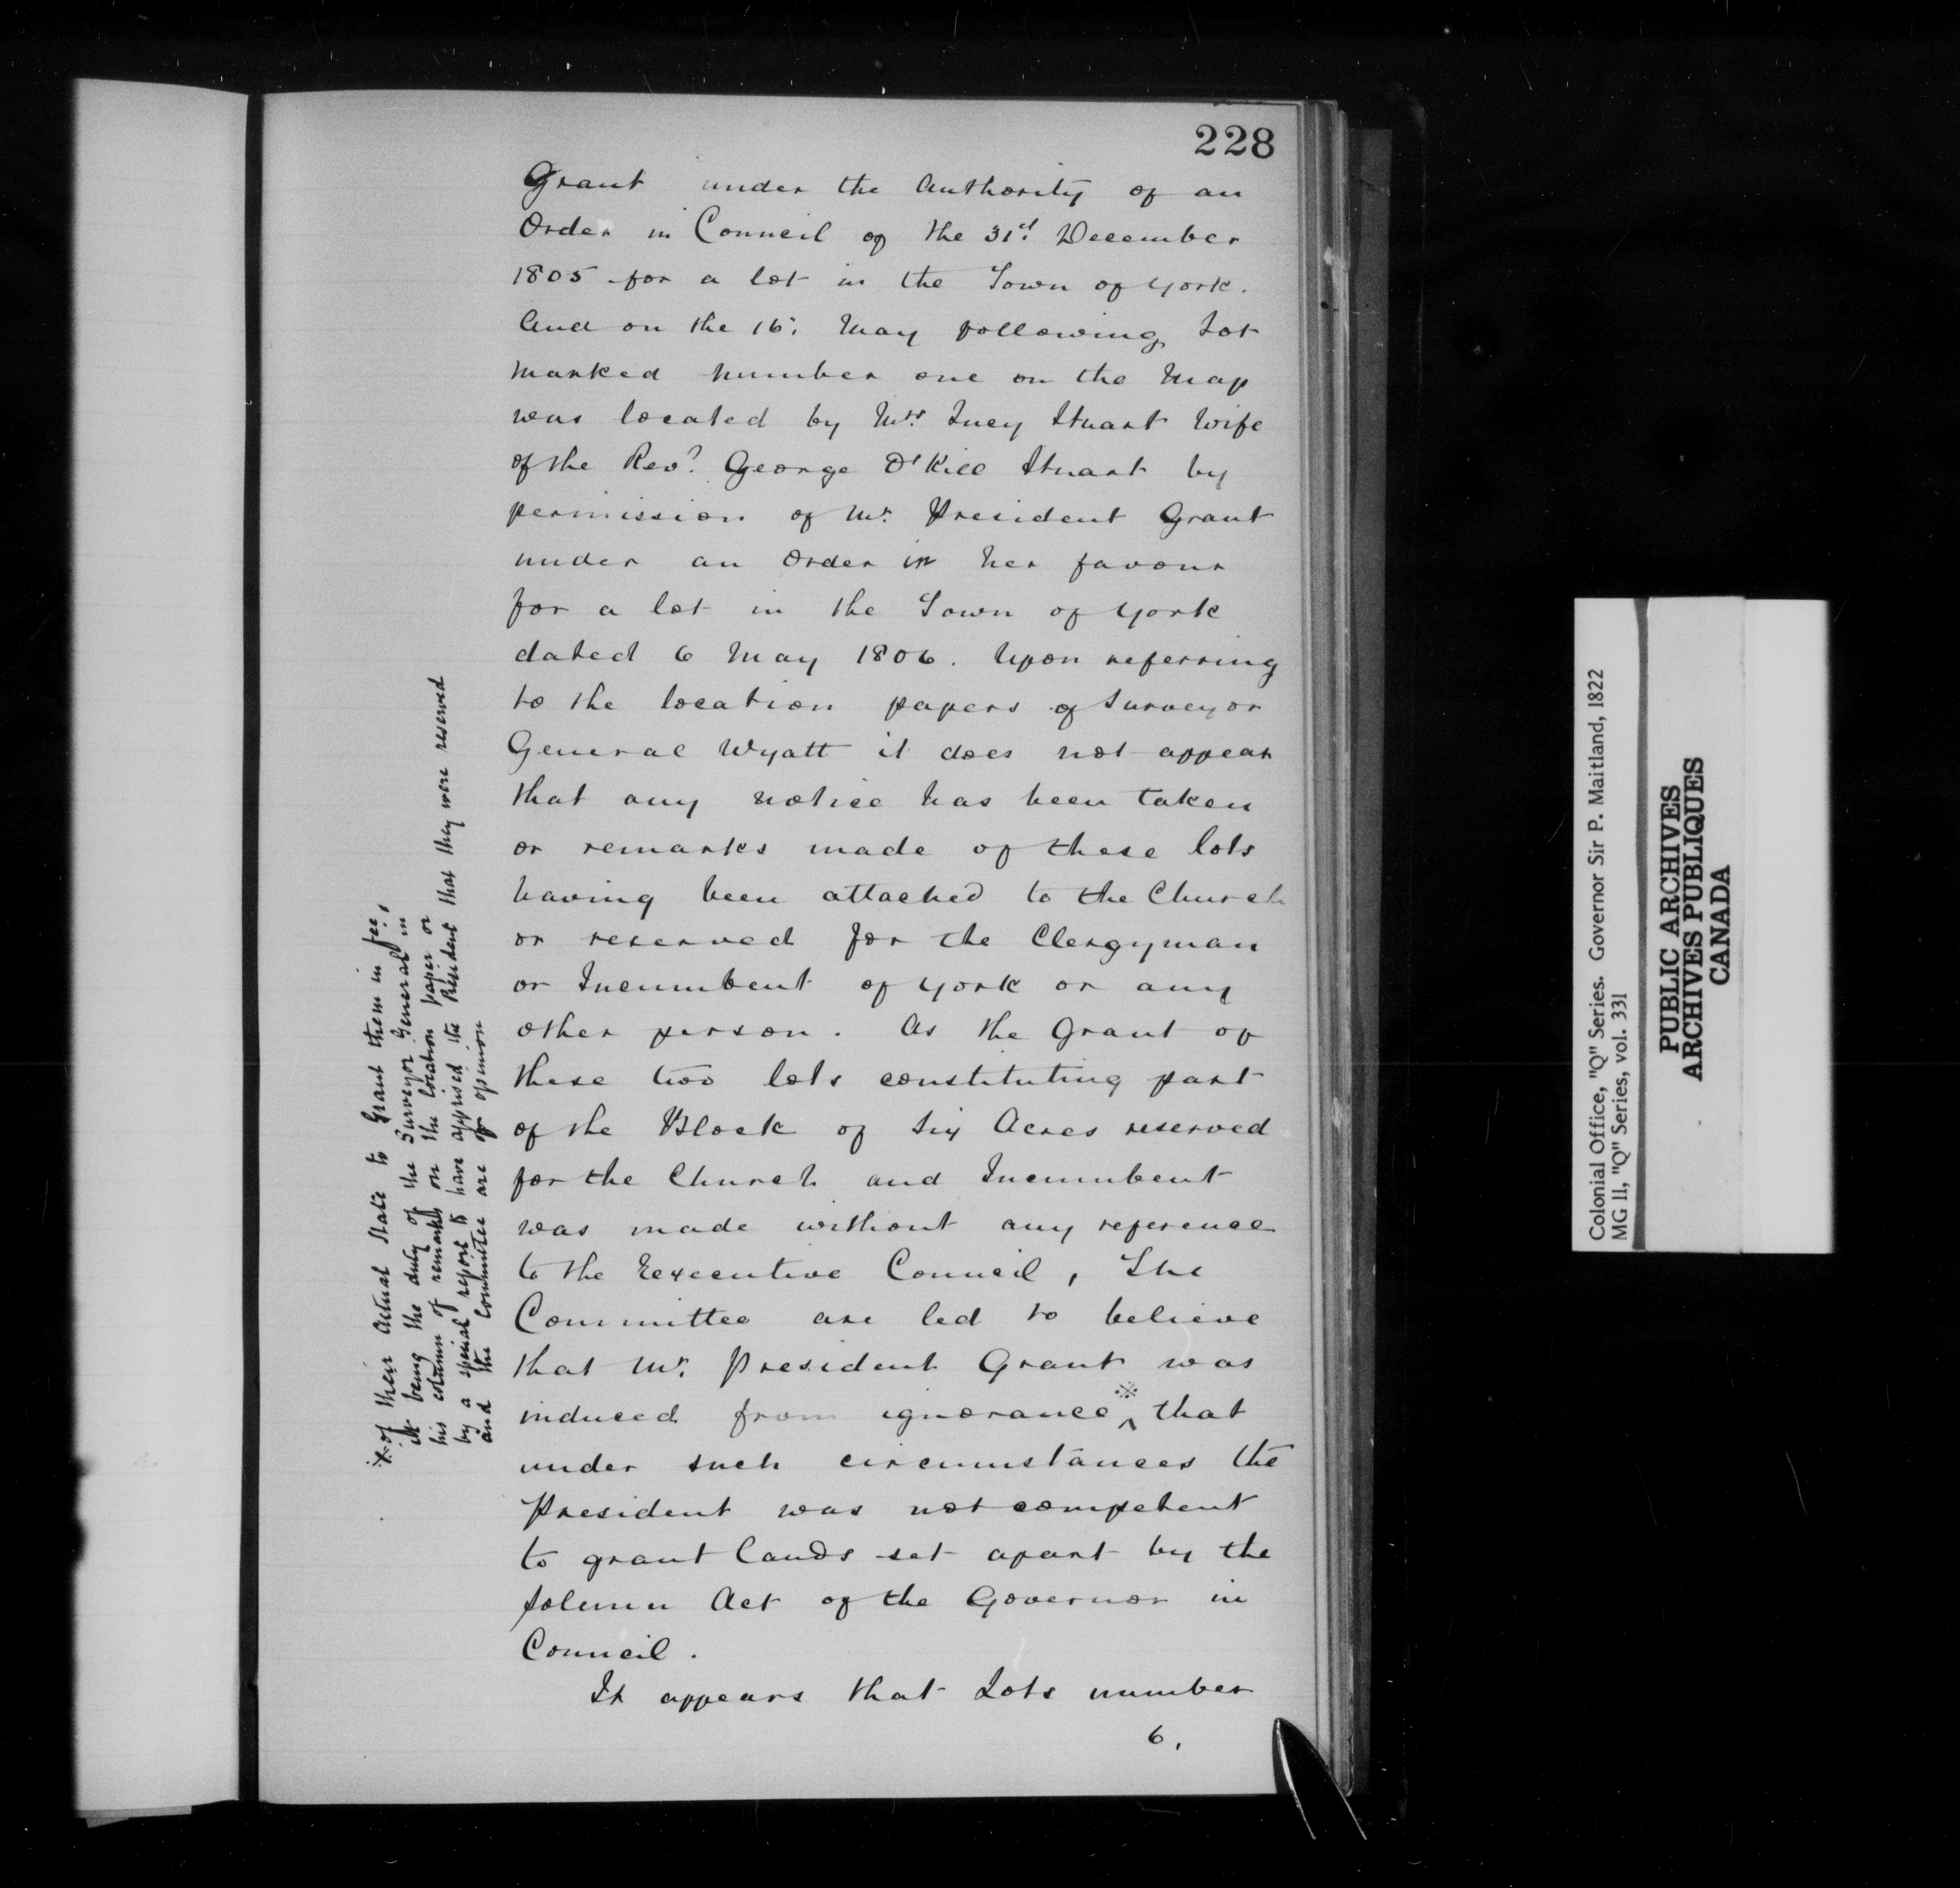 228
Grant under the Authority of an
Order in Council of the 31st December
1805 for a lot in the Town of York.
And on the 16: May following Lot
marked number one on the Map
was located by Mrs. Lucy Stuart Wife
of the Revd. George O'Kill Stuart by
permission of Mr. President Grant
under an Order in her favour
for a lot in the Town of York
dated 6 May 1806. Upon referring
to the location papers of Surveyor
General Wyatt it does not appear
that any notice has been taken
or remarks made of these lots
having been attached to the Church
or reserved for the Clergyman
or Incumbent of York or any
other person. As the Grant of
these two lots constituting part
of the Block of Six Acres reserved
for the Church and Incumbent
was made without any reference
to the Executive Council, The
Committee are led to believe
that Mr. President Grant was
induced from ignorance ※ ^ that
under such circumstances the
President was not competent
to grant lands set apart by the
solemn Act of the Governor in
Council.
It appears that Lots number
6,
※ of their actual state to Grant them in fee,
it being the duty of the Surveyor General in
his column of remarks on the location paper or
by a special report to have apprised the President that they were reserved
and the Committee are of opinion
Colonial Office, "Q" Series. Governor Sir P. Maitland, 1822
MG 11, "Q" Series, vol. 331
PUBLIC ARCHIVES
ARCHIVES PUBLIQUES
CANADA